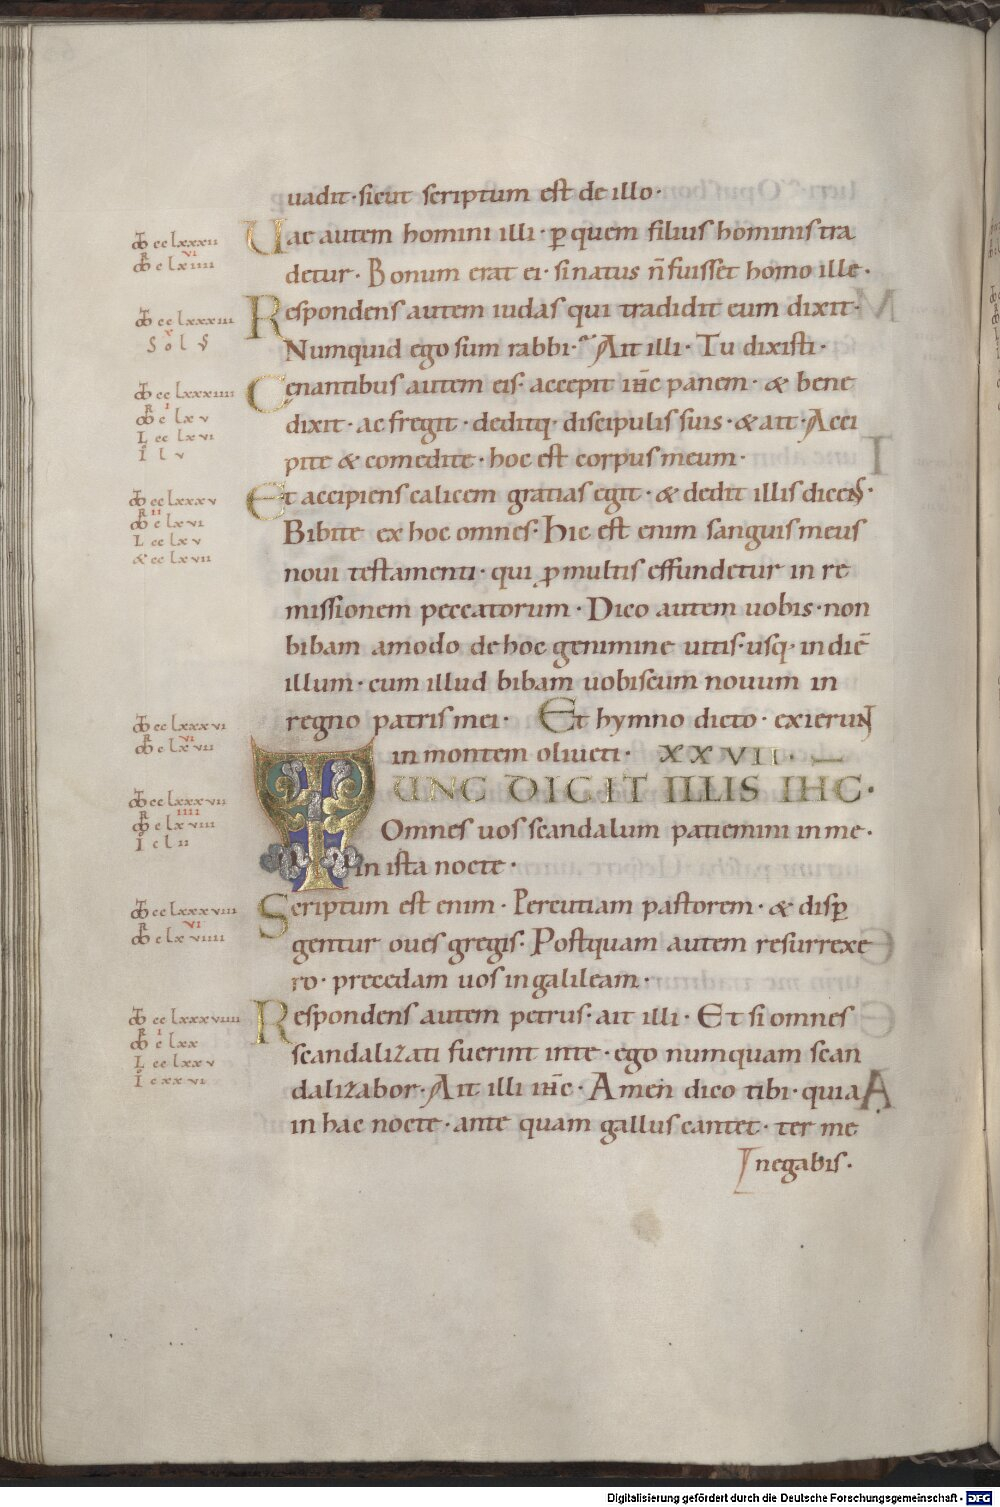 uadit · sicut scriptum est de illo ·
Uae autem homini illi · p quem filius hominis tra
detur · Bonum erat ei · si natus n̄ fuisset homo ille ·
Respondens autem iudas qui tradidit eum dixit ·
Numquid ego sum rabbi · Ait illi · Tu dixisti ·
Cenantibus autem eis · accepit ih̄c panem · & bene
dixit · ac fregit · deditq · discipulis suis · & ait · Acci
pite & comedite · hoc est corpus meum ·
Et accipiens calicem gratias egit · & dedit illis dicens ·
Bibite ex hoc omnes · Hic est enim sanguis meus
noui testamenti · qui p multis effundetur in re
missionem peccatorum · Dico autem uobis · non
bibam amodo de hoc genimine uitis · usq · in diē
illum · cum illud bibam uobiscum nouum in
regno patris mei · Et hymno dicto · exierunt
in montem oliueti · XXVII ·
TUNC DICIT ILLIS IH̄C ·
Omnes uos scandalum patiemini in me ·
in ista nocte ·
Scriptum est enim · Percutiam pastorem · & disp
gentur oues gregis · Postquam autem resurrexe
ro · precedam uos in galileam ·
Respondens autem petrus · ait illi · Et si omnes
scandalizati fuerint in te · ego numquam scan
dalizabor · Ait illi ih̄c · Amen dico tibi · quia
in hac nocte · ante quam gallus cantet · ter me
negabis ·
Digitalisierung gefördert durch die Deutsche Forschungsgemeinschaft - DFG